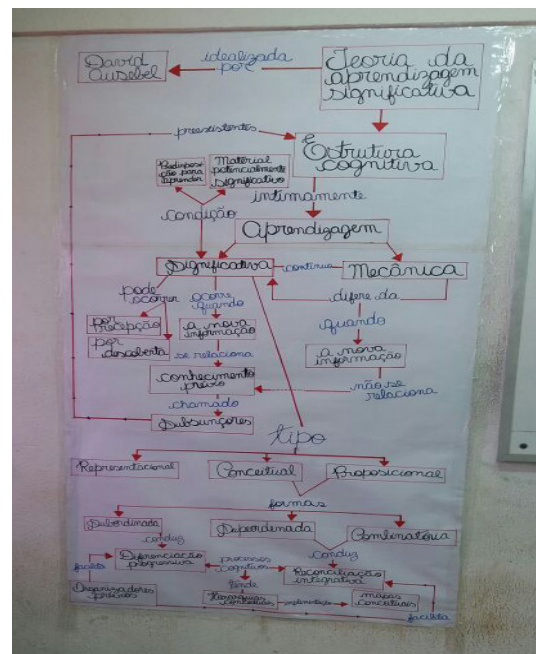 David
Ausebel
idealizada
por
Teoria da
aprendizagem
significativa
preexistentes
Estrutura
cognitiva
Predispo
ção para
aprender
Material
potencialmente
significativo
intimamente
condição
Aprendizagem
Significativa
contínuo
Mecânica
pode
ocorrer
ocorre
quando
difere da
por
recepção
a nova
informação
quando
por
descoberta
se relaciona
a nova
informação
conhecimento
prévio
não se
relaciona
chamado
Subsunçores
tipo
Representacional
Conceitual
Proposicional
formas
Subordinada
Superordenada
Combinatória
conduz
conduz
Diferenciação
progressiva
processos
cognitivos
Reconciliação
integrativa
facilita
tende
Organizadores
prévios
Hierarquias
conceituais
implementação
mapas
conceituais
facilita